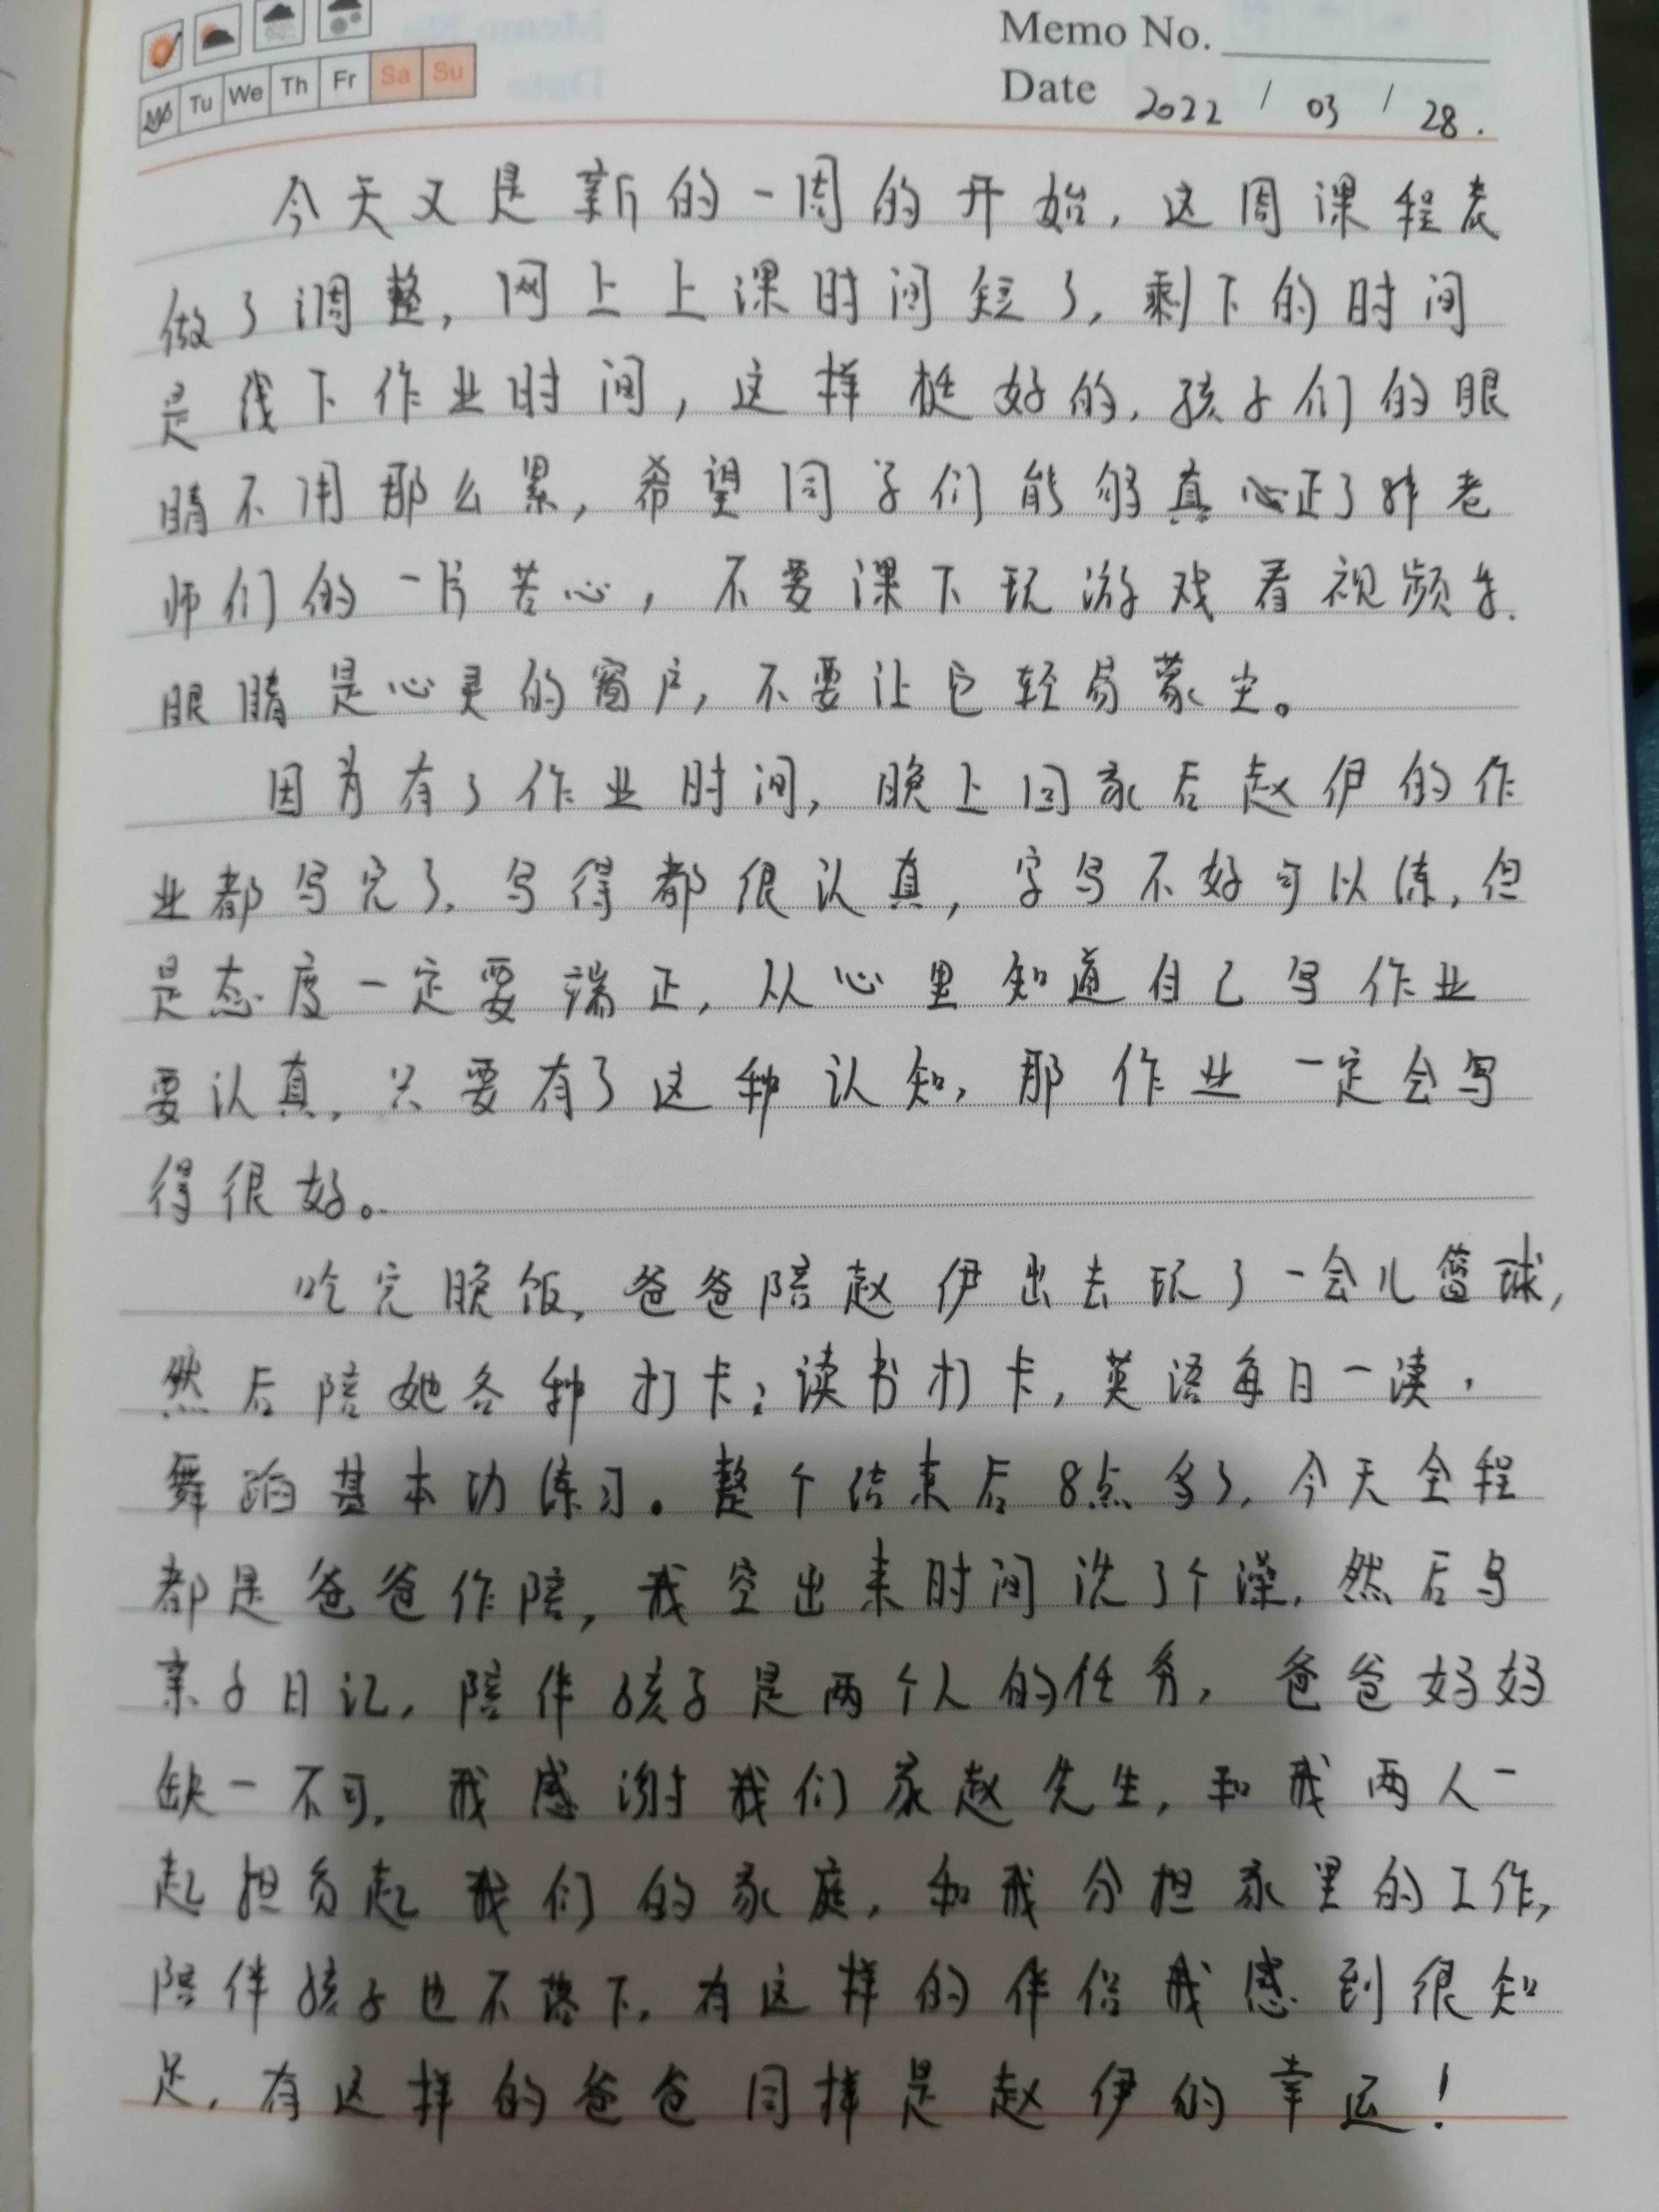 Memo No.
Mo Tu We Th Fr Sa Su
Date 2022 / 03 / 28.
今天又是新的一周的开始,这周课程表
做了调整,网上上课时间短了,剩下的时间
是线下作业时间,这样挺好的,孩子们的眼
睛不用那么累,希望同学们能够真心正了解老
师们的一片苦心,不要课下玩游戏看视频等.
眼睛是心灵的窗户,不要让它轻易蒙尘。
因为有了作业时间,晚上回家后赵伊的作
业都写完了.写得都很认真,字写不好可以练,但
是态度一定要端正,从心里知道自己写作业
要认真,只要有了这种认知,那作业一定会写
得很好。
吃完晚饭,爸爸陪赵伊出去玩了一会儿篮球,
然后陪她各种打卡:读书打卡,英语每日一读,
舞蹈基本功练习。整个结束后8点多了,今天全程
都是爸爸作陪,我空出来时间洗了个澡,然后写
亲子日记,陪伴孩子是两个人的任务,爸爸妈妈
缺一不可,我感谢我们家赵先生,和我两人一
起担负起我们的家庭,和我分担家里的工作,
陪伴孩子也不落下,有这样的伴侣我感到很知
足,有这样的爸爸同样是赵伊的幸运!